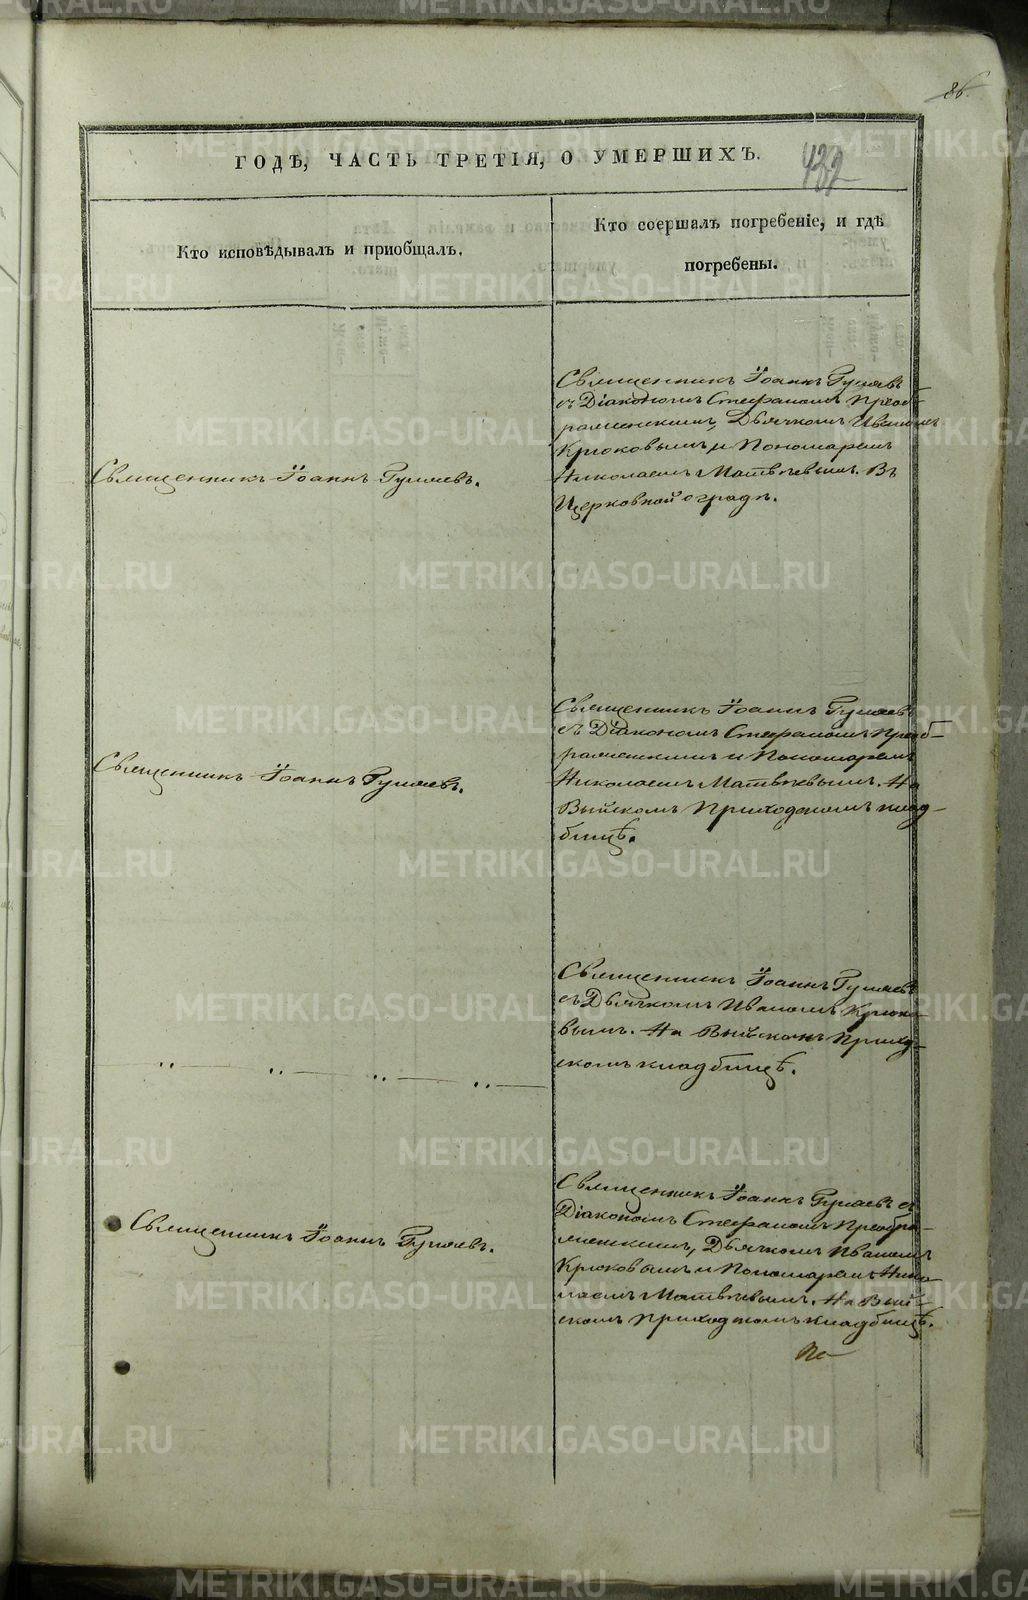 86.
ГОДѢ, ЧАСТЬ ТРЕТІЯ, О УМЕРШИХЪ.
432
Кто исповѣдывалъ и приобщалъ.
Кто соершалъ погребеніе, и гдѣ
погребены.
Священникъ Іоаннъ Гуляевъ
съ Діакономъ Стефаномъ Преоб-
раменскимъ, Дьячкомъ Иваномъ
Крюковымъ и Пономаремъ
Николаемъ Матвѣевымъ. Въ
Церковной оградѣ.
Священникъ Іоаннъ Гуляевъ.
Священникъ Іоаннъ Гуляевъ
съ Діакономъ Стефаномъ Преоб-
раменскимъ и Пономаремъ
Николаемъ Матвѣевымъ. На
Выйскомъ Приходскомъ клад-
бищѣ.
Священникъ Іоаннъ Гуляевъ.
Священникъ Іоаннъ Гуляевъ
съ Дьячкомъ Иваномъ Крюко-
вымъ. На Выйскомъ Приход-
скомъ кладбищѣ.
Священникъ Іоаннъ Гуляевъ съ
Діакономъ Стефаномъ Преобра-
менскимъ, Дьячкомъ Иваномъ
Крюковымъ и Пономаремъ Нико-
лаемъ Матвѣевымъ. На Вый-
скомъ Приходскомъ кладбищѣ.
Священникъ Іоаннъ Гуляевъ.
METRIKI.GASO-URAL.RU